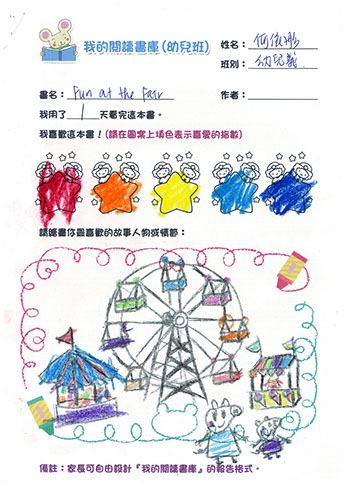 我的閱讀書庫(幼兒班)
姓名：何
班別：幼兒義
書名：Fun at the Fair
作者：
我用了 1 天看完這本書。
我喜歡這本書！(請在圖案上填色表示喜愛的指數)
請繪畫你最喜歡的故事人物或情節：
備註：家長可自由設計『我的閱讀書庫』的報告格式。